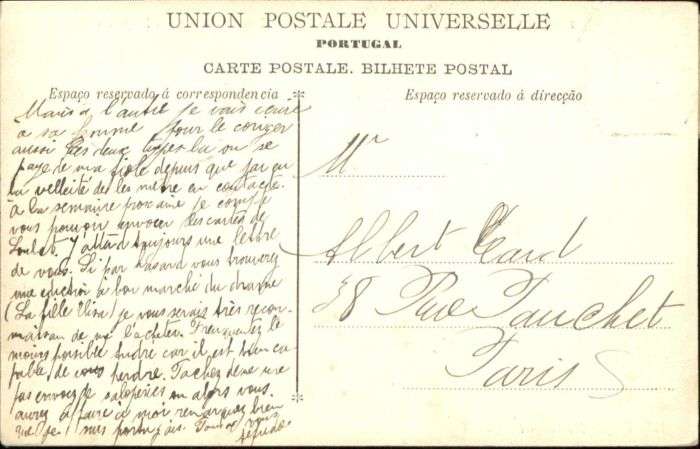 UNION POSTALE UNIVERSELLE
PORTUGAL
CARTE POSTALE. BILHETE POSTAL
Espaço reservado á correspondencia
Mais a l'autre je vais écrire
à sa femme pour le
aussi les deux types la ou se
paye de ma fiole depuis que j'ai eu
la velleité de les mettre en contact.
à la semaine prochaine je compte
vous pouvoir envoyer les cartes de
Loubet. J'attend toujours une lettre
de vous. Si par hasard vous trouverez
une edition à bon marché du drame
(La fille Elisa) je vous serais très recon-
de me l'acheter. Frequentez le
moins possible André car il est bien ca-
pable de vous perdre. Tachez de ne me
pas envoyer de saloperies ou alors vous
aurez à faire à moi remarquez bien
que je suis portugais. Tout à vous
Espaço reservado á direcção
Mr
Albert
38 Rue
Paris